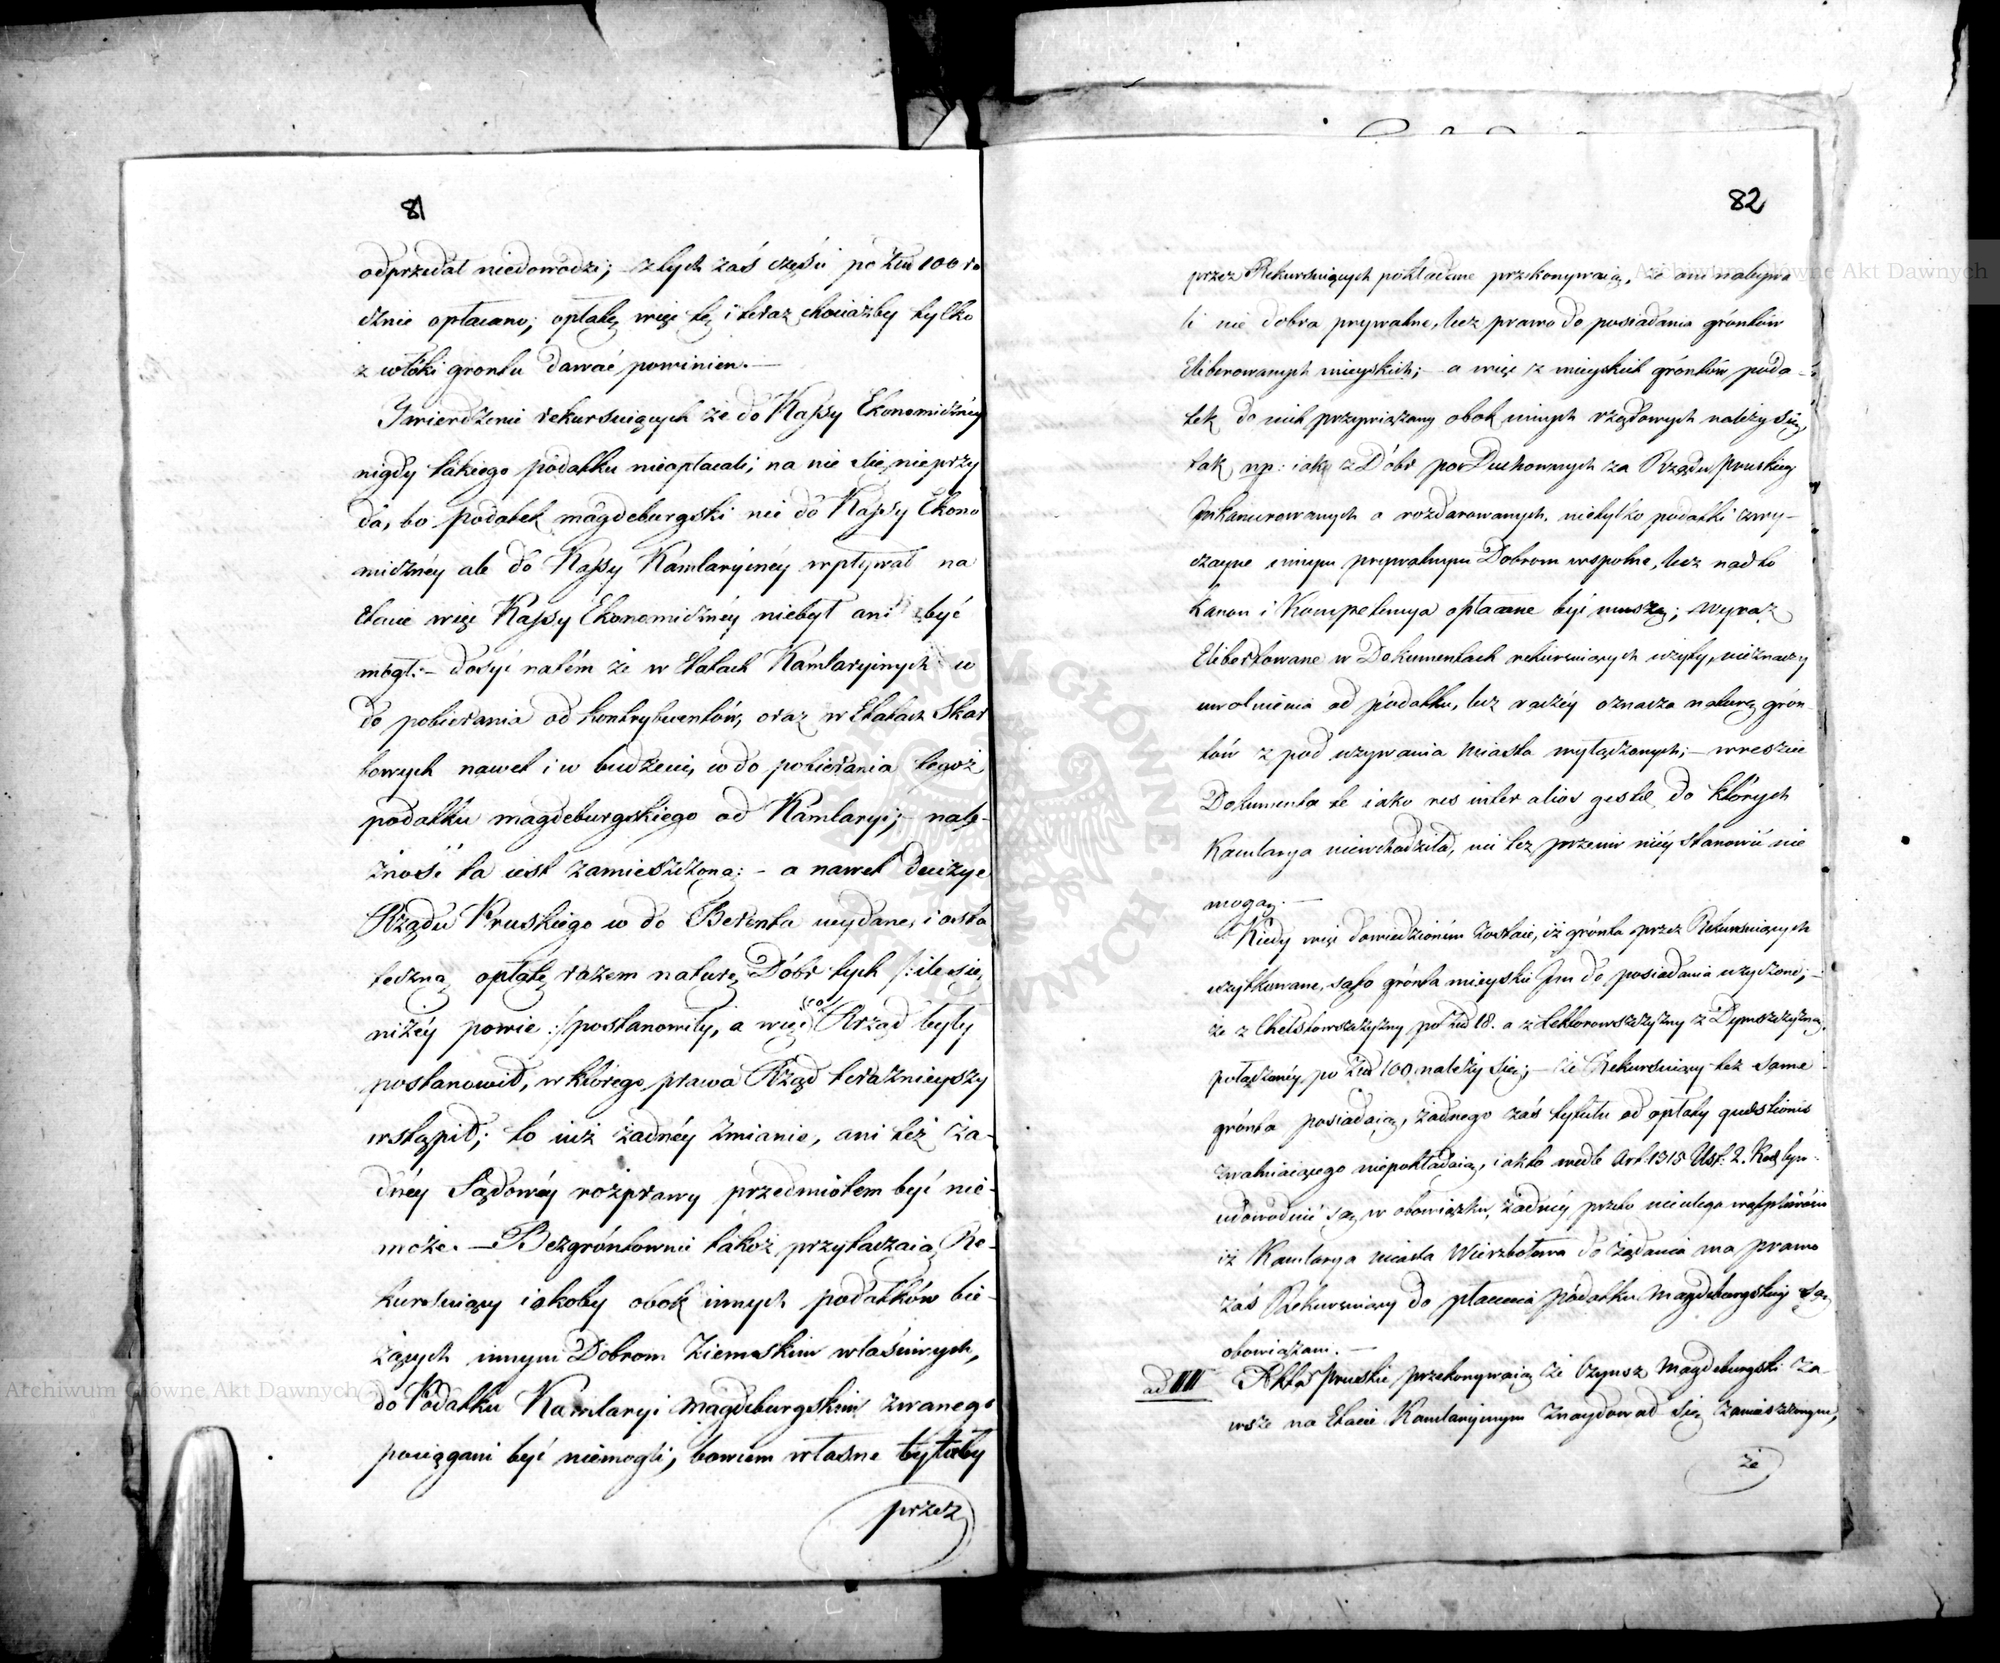 81
odprzedał niedowodzi; z tych zaś części po złt 100 ro
cznie opłacano; opłatę więc tę i teraz chociażby tylko
z włóki grontu dawać powinien. —
Twierdzenie rekursuiących że do Kassy Ekonomicznéy
nigdy takiego podatku nieopłacali; na nic się nieprzy
da, bo podatek magdeburgski nie do Kassy Ekono
micznéy ale do Kassy Kamlaryinéy wpływał na
Etacie więc Kassy Ekonomicznéy niebył ani być
mógł. – dosyć natém że w Etatach Kamlaryinych w
do pobierania od kontrybuentów, oraz w Etatach Skar
bowych nawet i w budżecie, w do pobierania tegoż
podatku magdeburgskiego od Kamlaryi; – nale-
żność ta iest zamieszczoną; – a nawet decizye
Rządu Pruskiego w do Berenta wydane, i osta
teczną opłatę razem naturę Dóbr tych /: ile się
niżéy powie :/ postanowiły, a więc co Rząd były
postanowił, w którego prawa Rząd teraznieyszy
wstąpił; to iuż żadnéy zmianie, ani też ża-
dnéy Sądowéy rozprawy przedmiotem być nie-
może. — Bezgróntownie takoż przytaczaią Re-
kursuiący iakoby obok innych podatków bie-
żących innym Dobrom Ziemskim właściwych,
do Podatku Kamlaryi Magdeburgskim zwanego
pociągani być niemogli; bowiem własne tytuły
przez
82
przez Rekursuiących pokładane przekonywaią, że oni nabywa
li nie dobra prywatne, lecz prawo do posiadania gróntów
Eliberowanych mieyskich; – a więc z mieyskich gróntów poda-
tek do nich przywiązany obok innych rządowych należy się,
tak np: iak z Dóbr poDuchownych za Rządu pruskiego
inkamerowanych a rozdarowanych, nietylko podatki zwy-
czayne innym prywatnym Dobrom wspólne, lecz nadto
Kanon i Kompetencya opłacane być muszą; wyraz
Elibertowane w Dokumentach rekursuiących użyty, nieznaczy
uwolnienia od pódatku, lecz raczéy oznacza naturę grón-
tów z pod używania Miasta wyłączonych; – wreszcie
Dokumenta te iako res inter alios gestæ do których
Kamlarya niewchodziła, nic też przeciw niéy stanowić nie
mogą. —
Kiedy więc dowiedzioném zostaie, iż grónta przez Rekursuiących
użytkowane, są to grónta mieyskie Im do posiadania użyczone; –
że z Chełstowszczyzny po złt 18. a z Lektorowszczyzny z Dymszczyzną
połączonéy po złt 100 należy się; – że Rekursuiący też same
grónta posiadaią, żadnego zaś tytułu od opłaty quæstionis
zwalniaiącego niepokładaią, iakto wedle Art: 1315 Ust: 2. Kod: cyw:
udowodnić są w obowiązku, żadnéy przeto nieulega wątpliwości
iż Kamlarya Miasta Wierzbołowa do żądania ma prawo
zaś Rekursuiący do płacenia pódatku Magdeburgskiego są
obowiązani. —
ad III Akta pruskie przekonywaią że Czynsz Magdeburgski za-
wsze na Etacie Kamlaryinym znaydował się zamieszczonym,
że
Archiwum Główne Akt Dawnych
Archiwum Główne Akt Dawnych